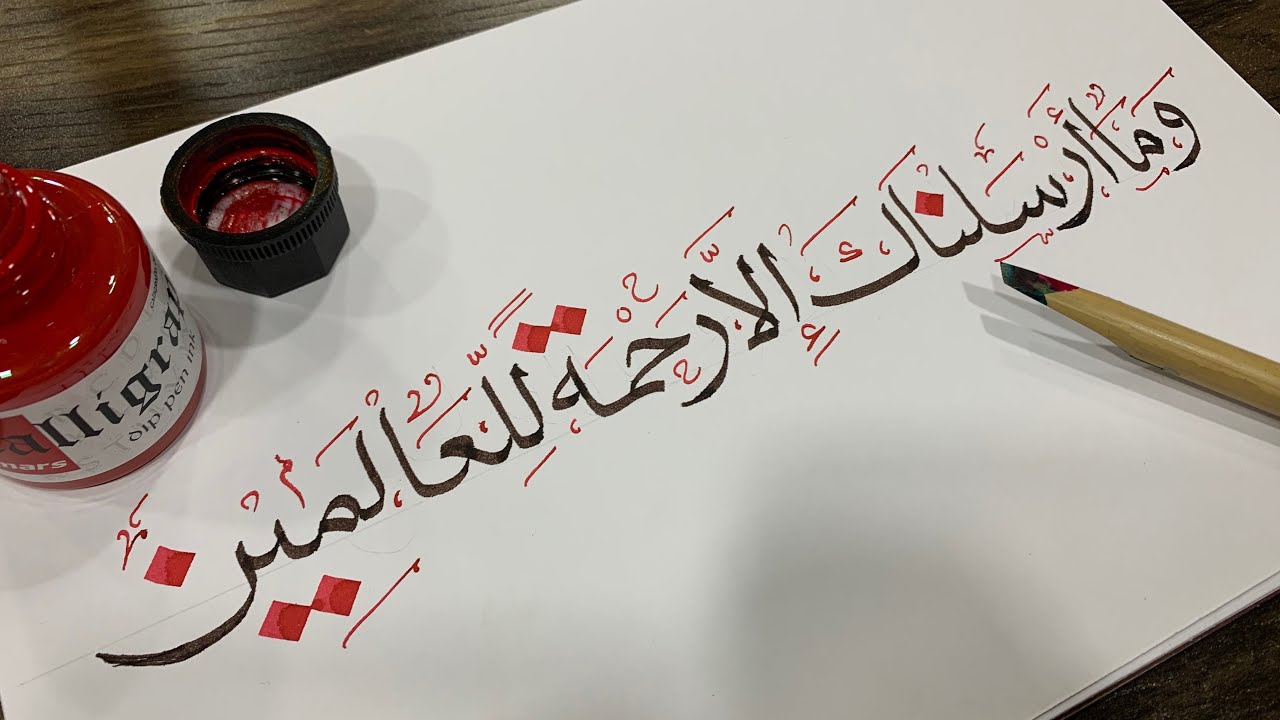 وَمَا أَرْسَلْنَاكَ إِلَّا رَحْمَةً لِّلْعَالَمِينَ
alligra
dip pen ink
mars